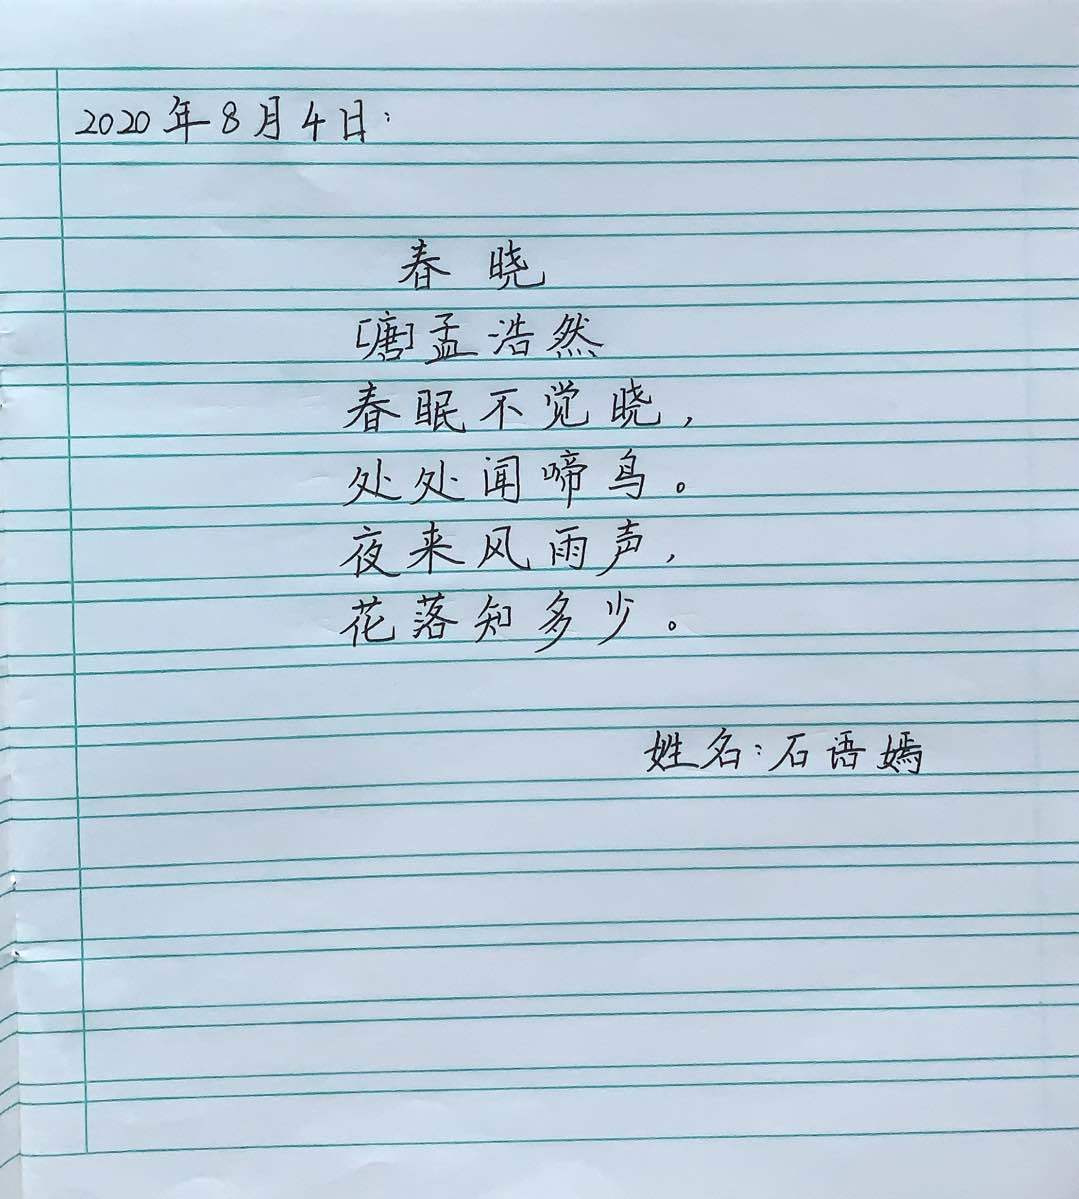 2020年8月4日：
春晓
[唐]孟浩然
春眠不觉晓，
处处闻啼鸟。
夜来风雨声，
花落知多少。
姓名：石语嫣